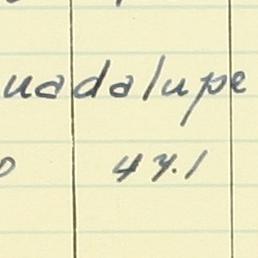 uadalupe
47.1